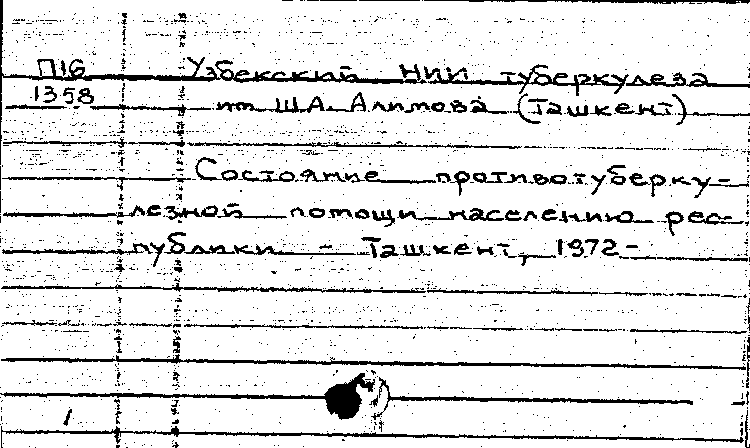 П16 Узбекский НИИ туберкулеза
1358 им Ш.А. Алимова (Ташкент).
Состояние противотуберку-
лезной помощи населению рес-
публики - Ташкент, 1972-
1